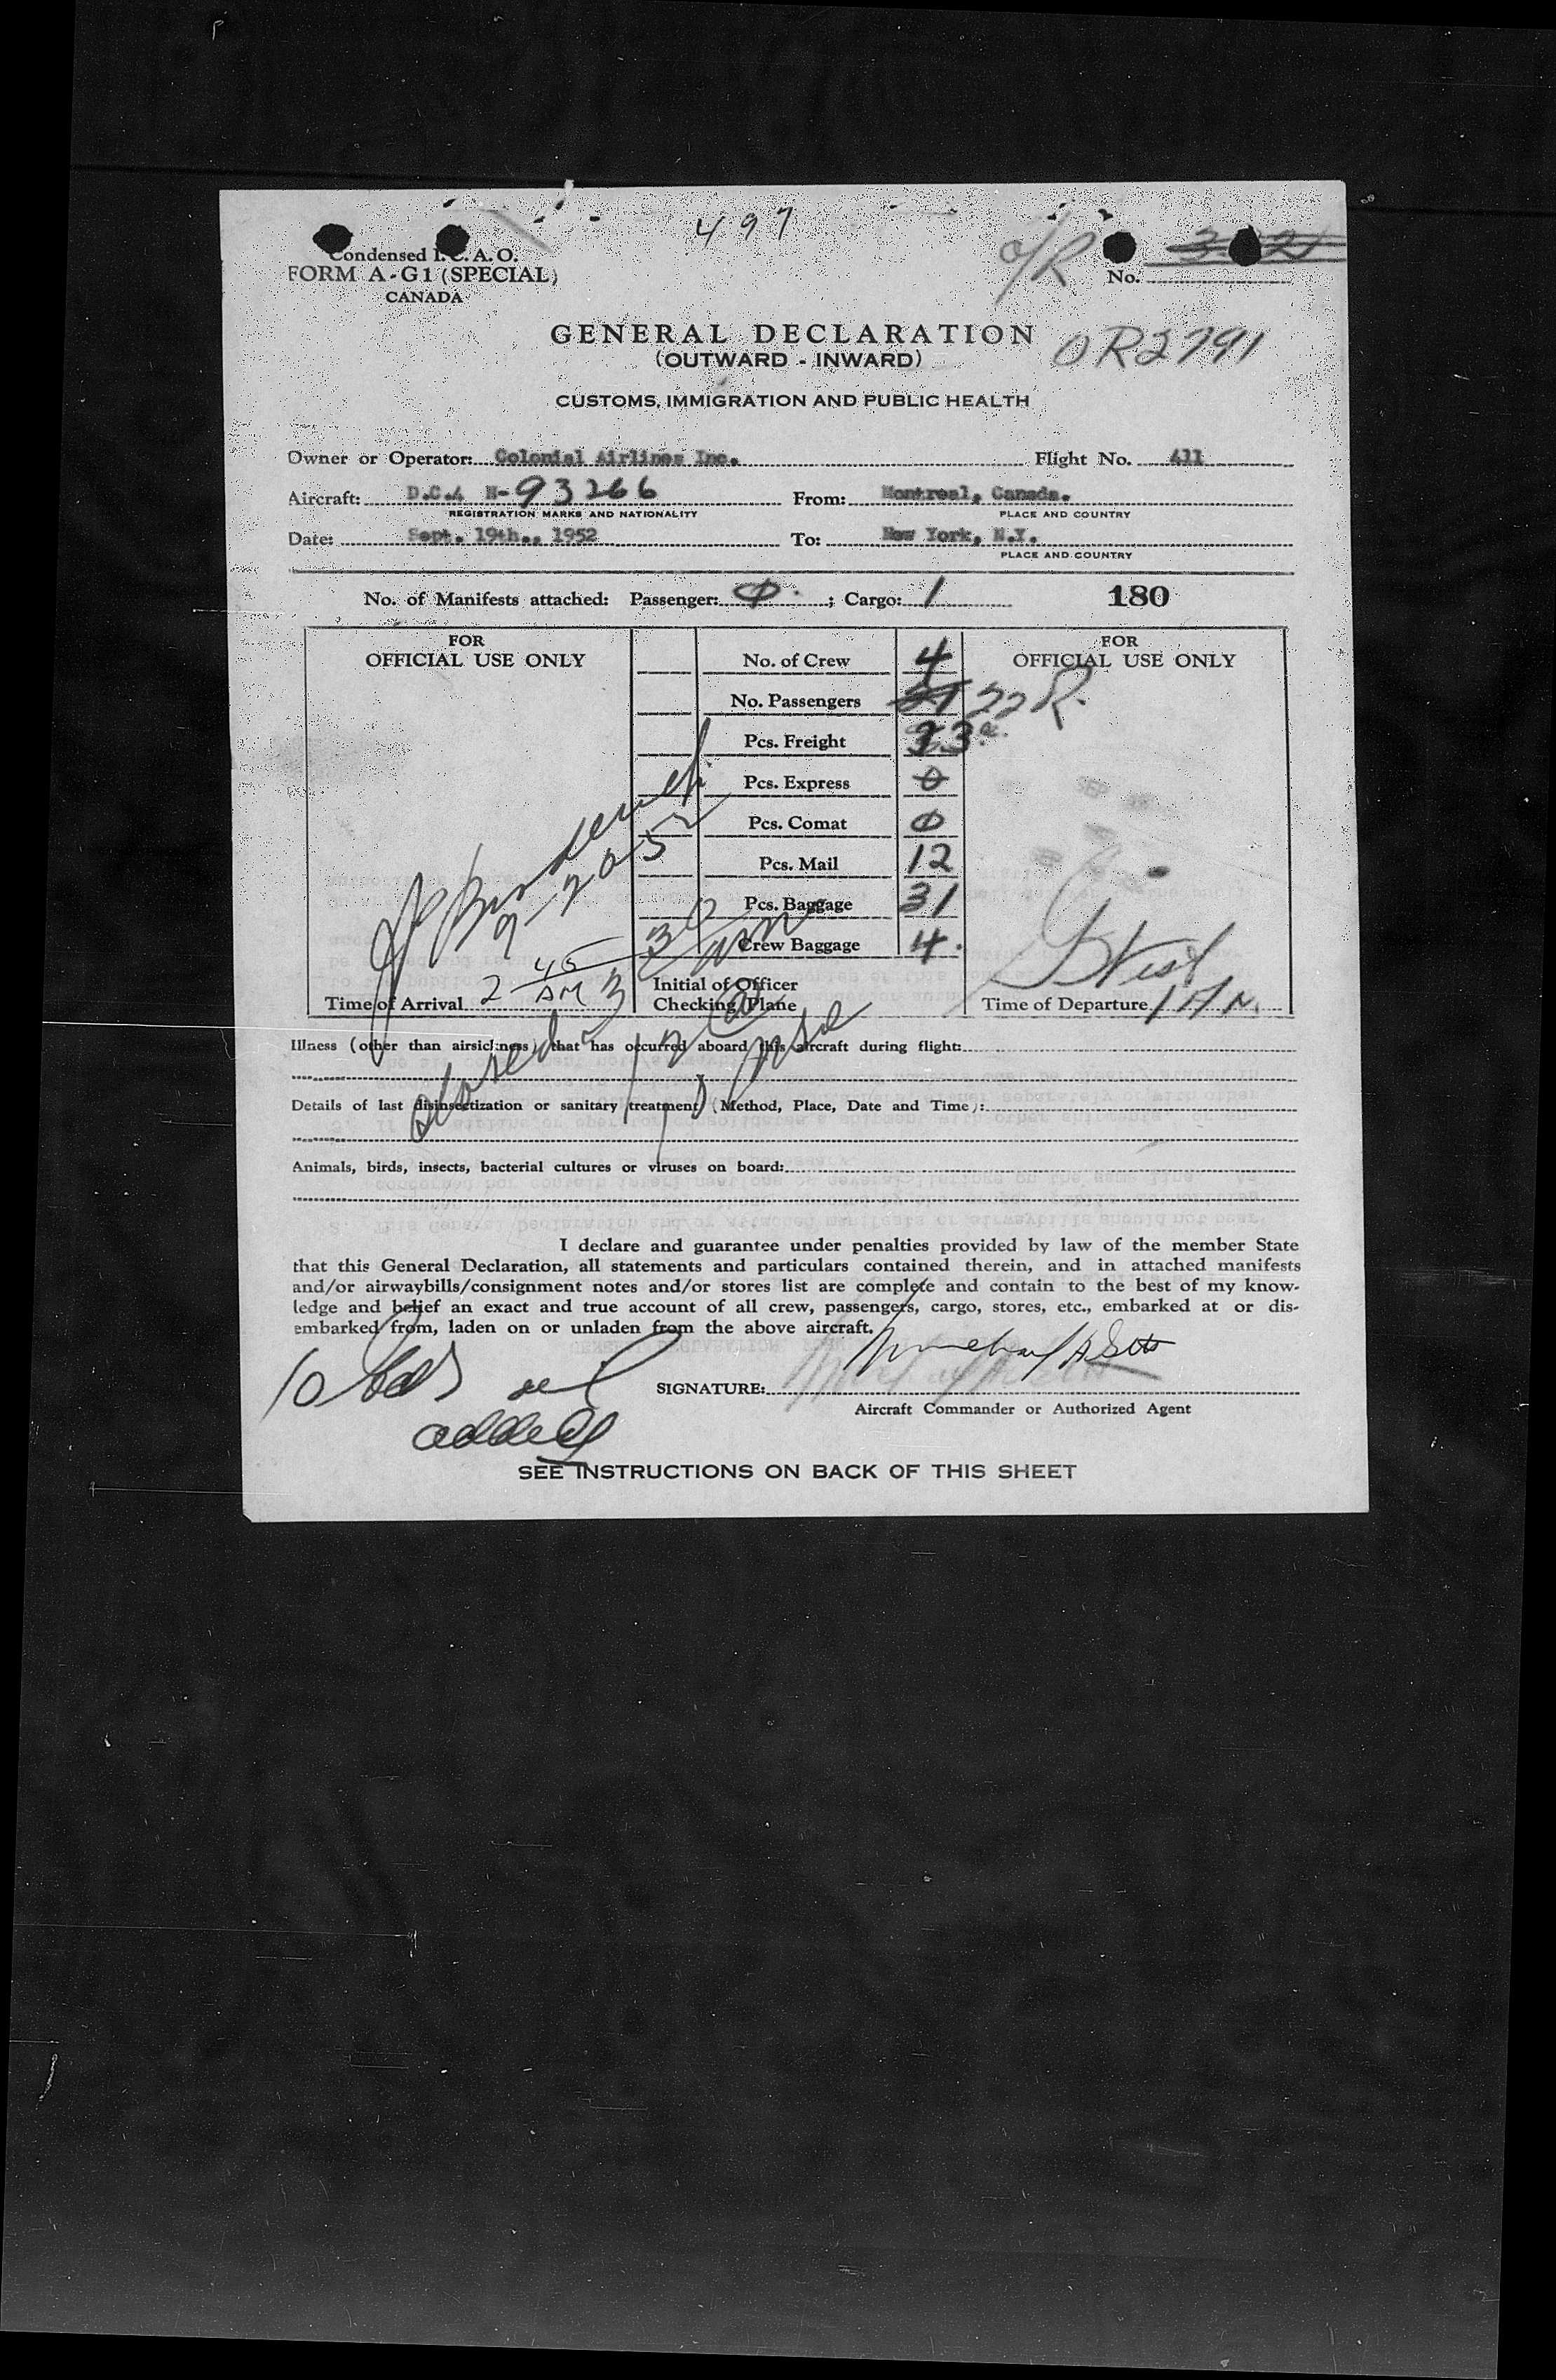 497
Condensed I.C.A.O.
FORM A-G1 (SPECIAL)
CANADA
O/R
No.
GENERAL DECLARATION
OR2791
(OUTWARD - INWARD)
CUSTOMS, IMMIGRATION AND PUBLIC HEALTH
Owner or Operator: Colonial Airlines Inc. Flight No. 411
Aircraft: D.C.4 N-93266 From: Montreal, Canada.
REGISTRATION MARKS AND NATIONALITY PLACE AND COUNTRY
Date: Sept. 19th., 1952 To: New York, N.Y.
PLACE AND COUNTRY
No. of Manifests attached: Passenger: 0 ; Cargo: 1 180
FOR OFFICIAL USE ONLY
No. of Crew 4
No. Passengers 21 22 R.
Pcs. Freight
Pcs. Express 0
Pcs. Comat 0
Pcs. Mail 12
Pcs. Baggage 31
Crew Baggage 4.
9-20-52
Time of Arrival 2 45 AM
3 30 am
Initial of Officer
Checking Plane
FOR
OFFICIAL USE ONLY
Time of Departure 1 A M.
Illness (other than airsickness) that has occurred aboard this aircraft during flight:
Details of last disinsectization or sanitary treatment (Method, Place, Date and Time):
Animals, birds, insects, bacterial cultures or viruses on board:
I declare and guarantee under penalties provided by law of the member State
that this General Declaration, all statements and particulars contained therein, and in attached manifests
and/or airwaybills/consignment notes and/or stores list are complete and contain to the best of my know-
ledge and belief an exact and true account of all crew, passengers, cargo, stores, etc., embarked at or dis-
embarked from, laden on or unladen from the above aircraft.
SIGNATURE:
Aircraft Commander or Authorized Agent
SEE INSTRUCTIONS ON BACK OF THIS SHEET